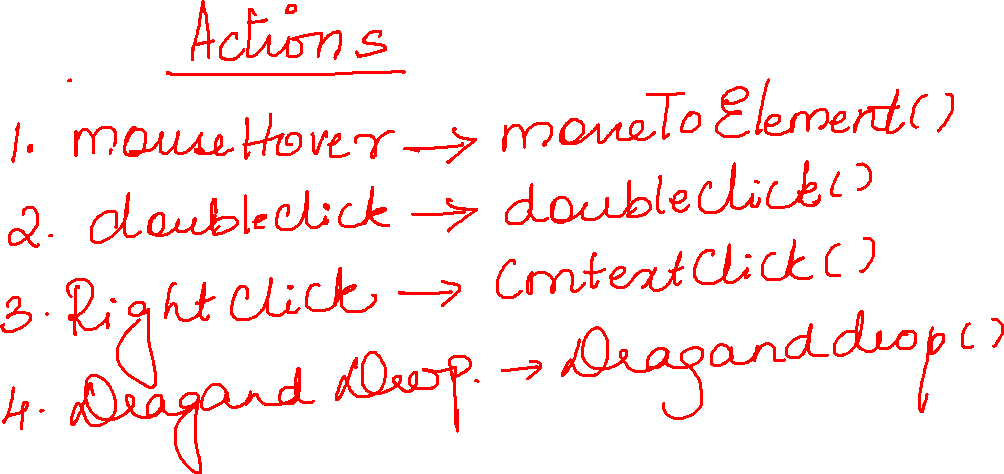 Actions
1. mouseHover → moveToElement()
2. doubleclick → doubleClick()
3. RightClick → ContextClick()
4. Dragand Drop. → Draganddrop()